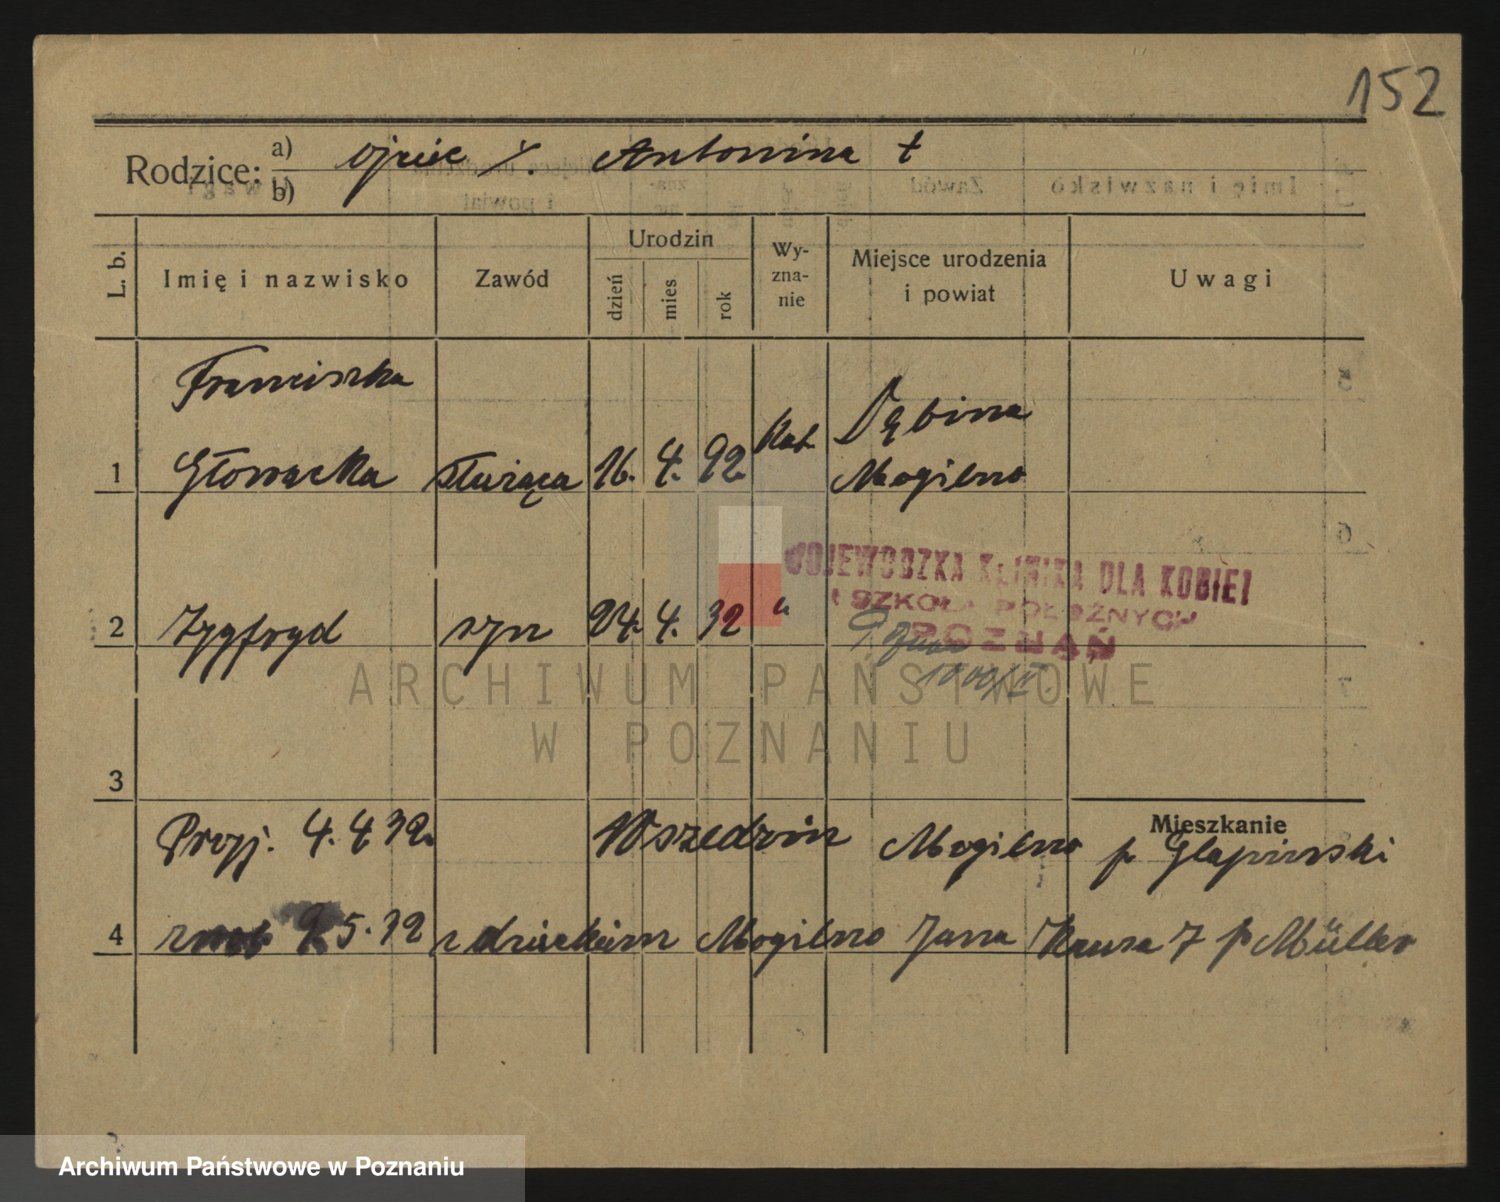 152
Rodzice: a) ojciec X. Antonina †
b)
L. b. Imię i nazwisko Zawód Urodzin dzień mies rok Wy-zna-nie Miejsce urodzenia i powiat Uwagi
Franciszka
1 Głowacka służąca 16. 4. 92. kat. Dębina
Mogilno
WOJEWODZKA KLINIKA DLA KOBIET
I SZKOŁA POŁOŻNYCH
POZNAŃ
2 Zygfryd syn 24. 4. 32 "
3
Mieszkanie
Przyj. 4. 4 32. Wszedzin Mogilno p. Glapinski
4 5. 32 z dzieckiem Mogilno Jana Kausa 7 p Müller
ARCHIWUM PAŃSTWOWE
W POZNANIU
Archiwum Państwowe w Poznaniu